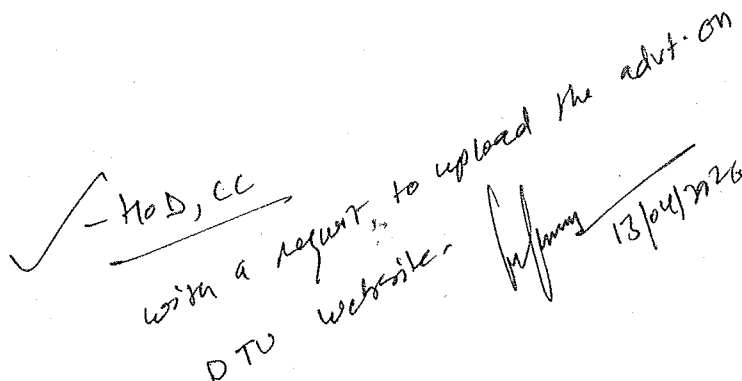 - HoD, CC
with a request to upload the advt. on
DTU website.
13/04/2026